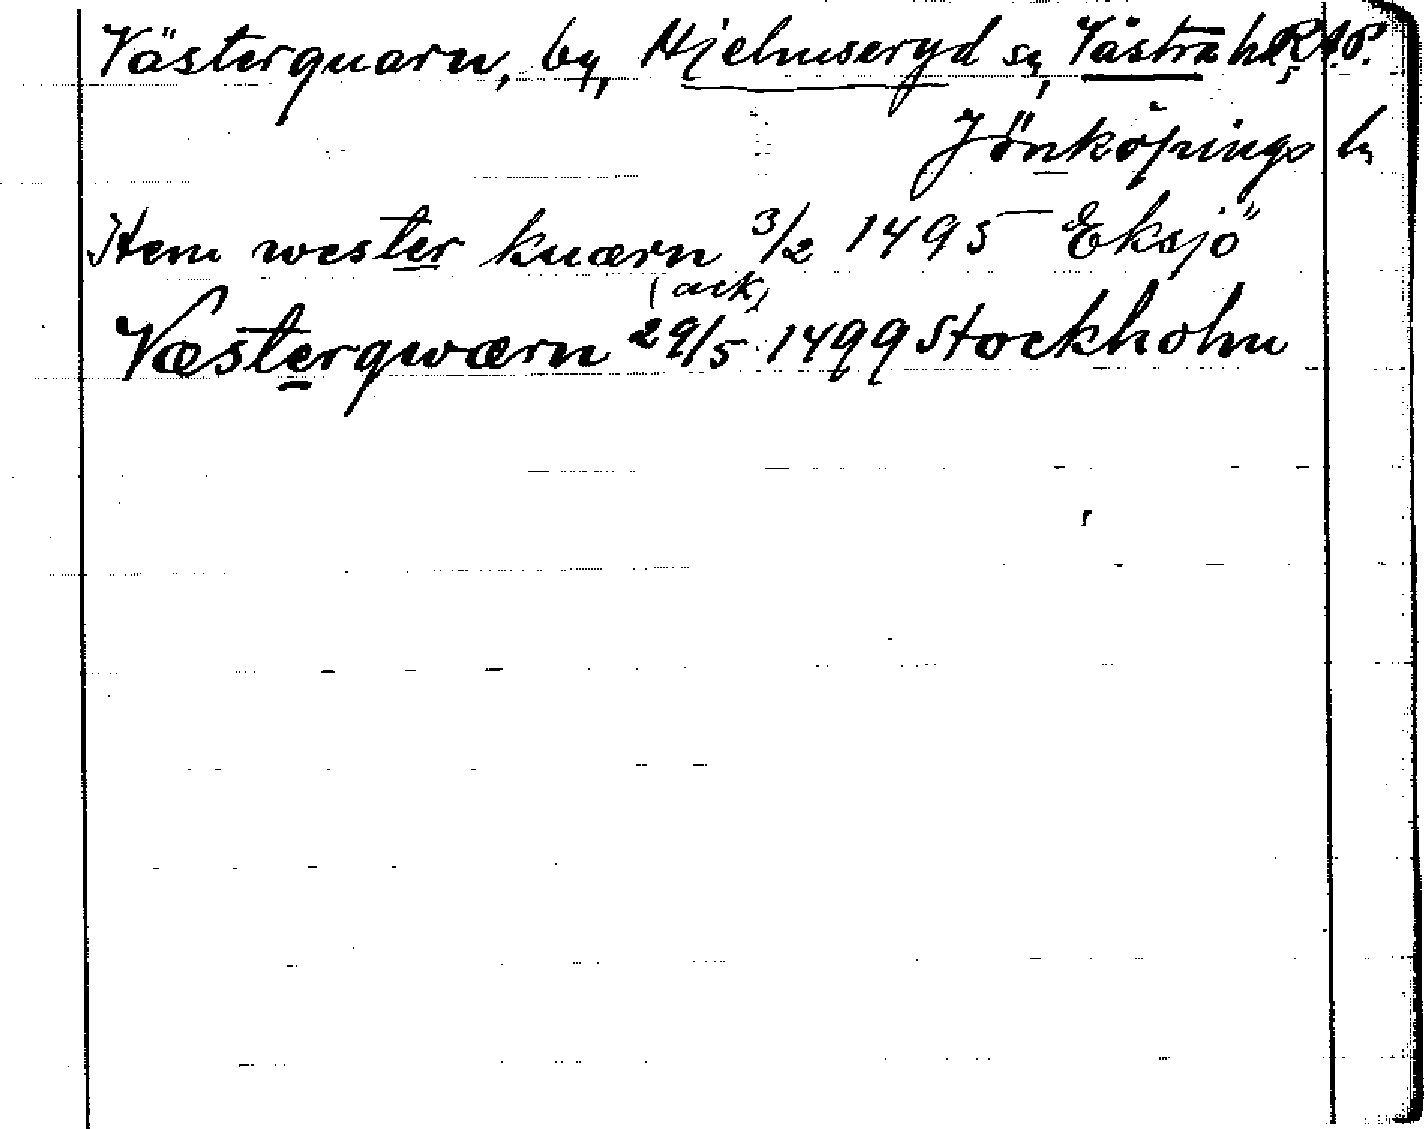 Västerquarn, by, Hjelmseryd sn, Västra hd R.A.P.
Jönköpings ln
Item wester kuærn 3/2 1495 Eksjö
(ack)
Væsterqwærn 29/5 1499 Stockholm